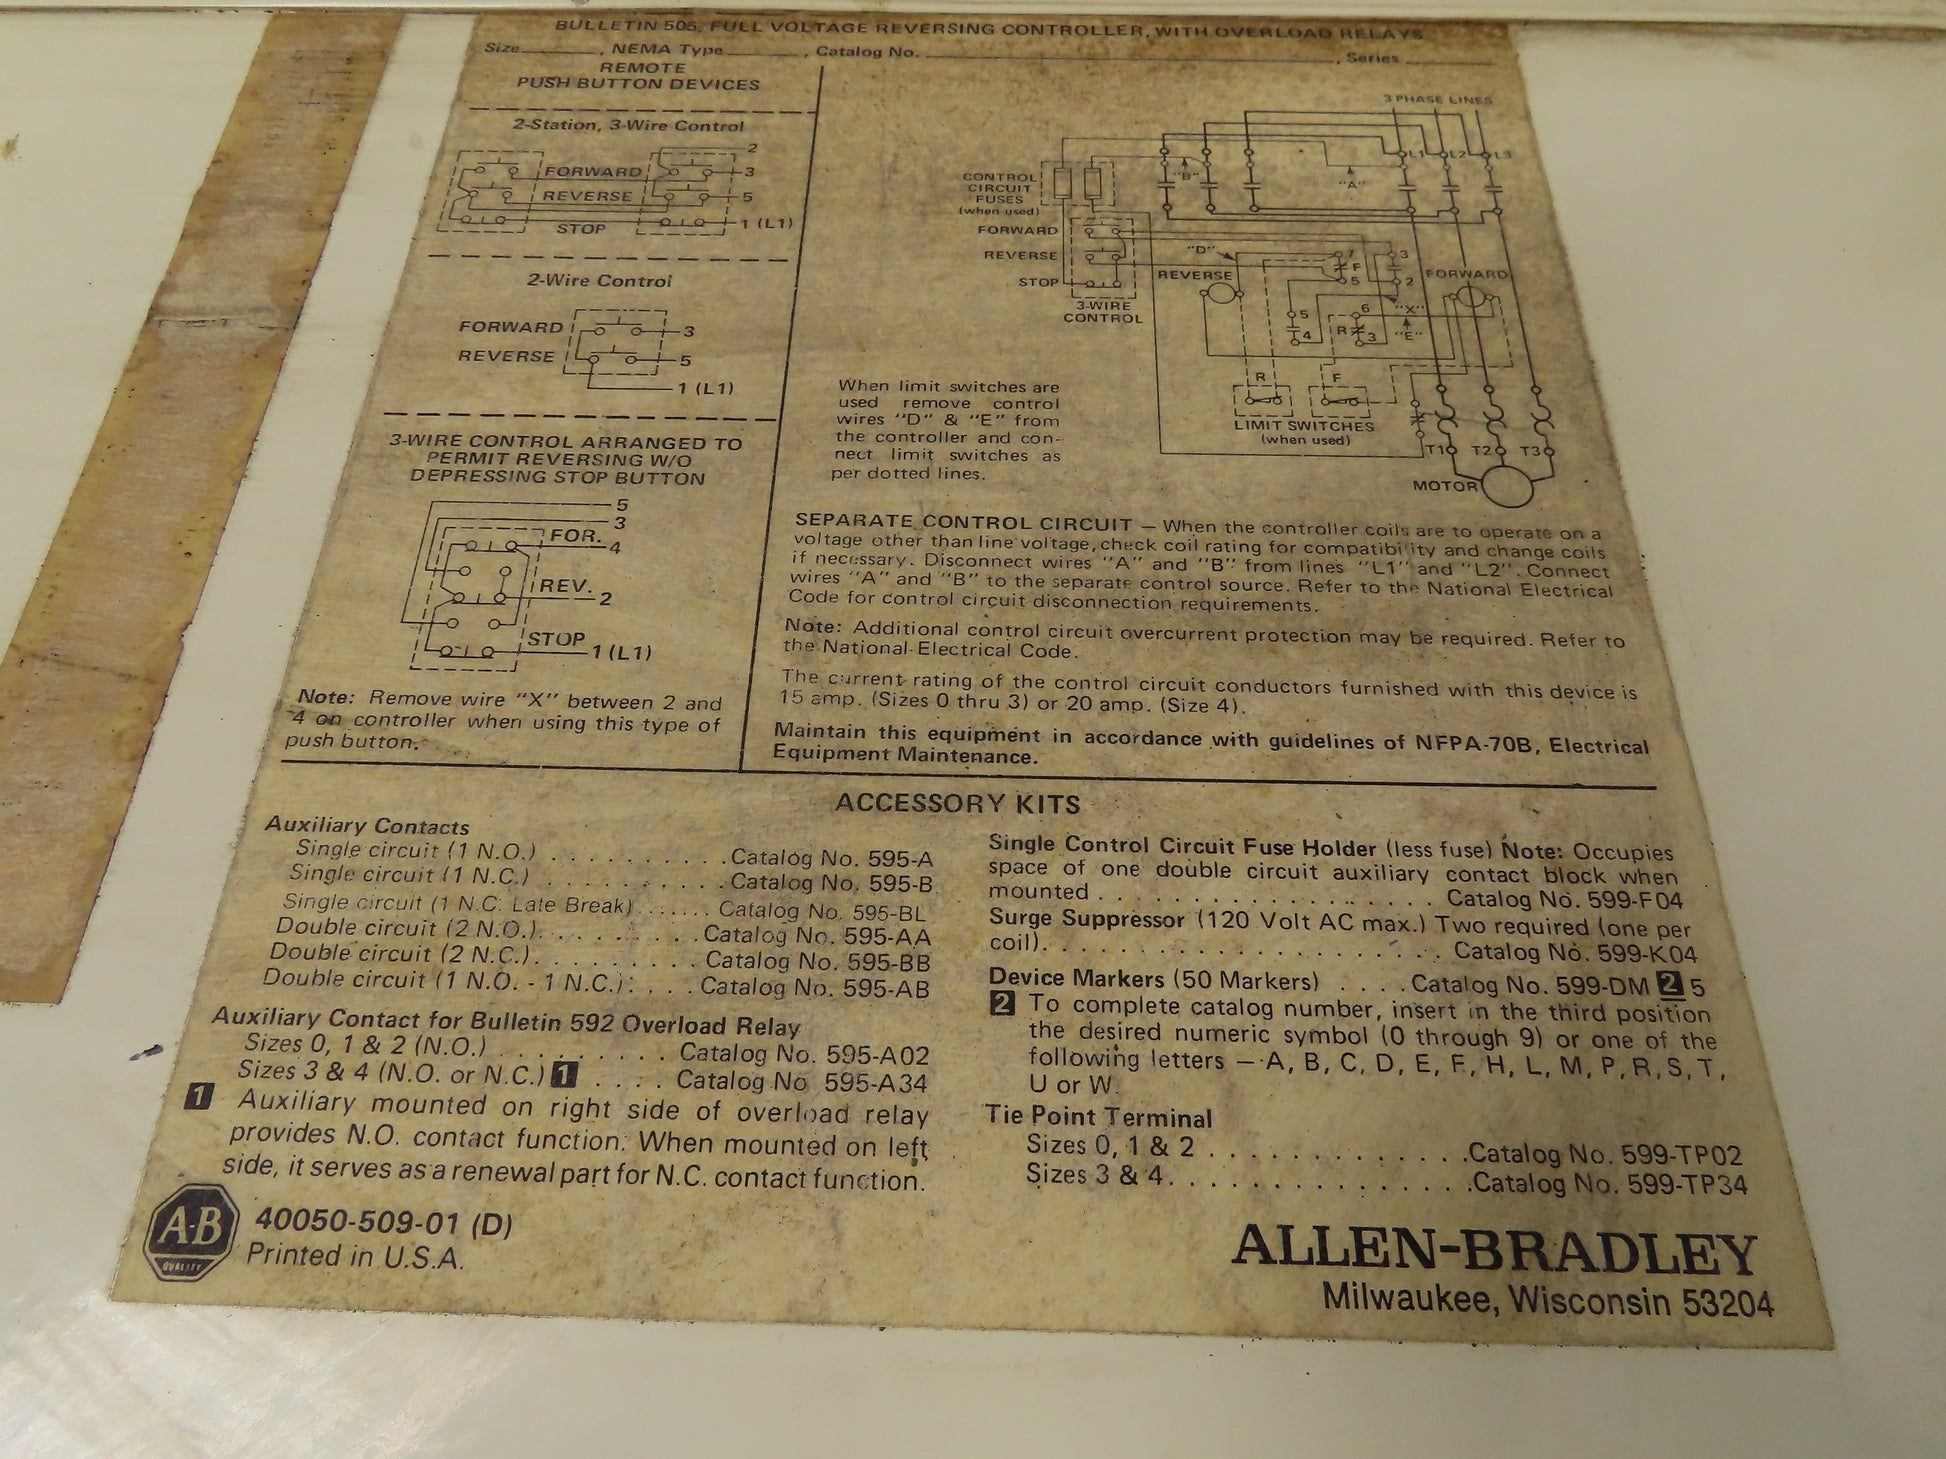 BULLETIN 505, FULL VOLTAGE REVERSING CONTROLLER, WITH OVERLOAD RELAYS
Size , NEMA Type , Catalog No. , Series
REMOTE
PUSH BUTTON DEVICES
2-Station, 3-Wire Control
2
FORWARD 3
REVERSE 5
STOP 1 (L1)
2-Wire Control
FORWARD 3
REVERSE 5
1 (L1)
3-WIRE CONTROL ARRANGED TO
PERMIT REVERSING W/O
DEPRESSING STOP BUTTON
5
3
FOR. 4
REV. 2
STOP 1 (L1)
Note: Remove wire "X" between 2 and
4 on controller when using this type of
push button.
3 PHASE LINES
L1 L2 L3
"B" "A"
CONTROL
CIRCUIT
FUSES
(when used)
FORWARD
REVERSE
STOP
3-WIRE
CONTROL
"D" 7 3
F
REVERSE 5 2 FORWARD
5 6 "X"
4 R 3 "E"
R F
LIMIT SWITCHES
(when used)
T1 T2 T3
MOTOR
When limit switches are
used remove control
wires "D" & "E" from
the controller and con-
nect limit switches as
per dotted lines.
SEPARATE CONTROL CIRCUIT — When the controller coils are to operate on a
voltage other than line voltage, check coil rating for compatibility and change coils
if necessary. Disconnect wires "A" and "B" from lines "L1" and "L2". Connect
wires "A" and "B" to the separate control source. Refer to the National Electrical
Code for control circuit disconnection requirements.
Note: Additional control circuit overcurrent protection may be required. Refer to
the National Electrical Code.
The current rating of the control circuit conductors furnished with this device is
15 amp. (Sizes 0 thru 3) or 20 amp. (Size 4).
Maintain this equipment in accordance with guidelines of NFPA-70B, Electrical
Equipment Maintenance.
ACCESSORY KITS
Auxiliary Contacts
Single circuit (1 N.O.) . . . . . . . . . . Catalog No. 595-A
Single circuit (1 N.C.) . . . . . . . . . . Catalog No. 595-B
Single circuit (1 N.C. Late Break) . . . . . . . Catalog No. 595-BL
Double circuit (2 N.O.). . . . . . . . . Catalog No. 595-AA
Double circuit (2 N.C.). . . . . . . . . Catalog No. 595-BB
Double circuit (1 N.O. - 1 N.C.). . . . Catalog No. 595-AB
Auxiliary Contact for Bulletin 592 Overload Relay
Sizes 0, 1 & 2 (N.O.) . . . . . . . . . Catalog No. 595-A02
Sizes 3 & 4 (N.O. or N.C.) 1 . . . . Catalog No 595-A34
1 Auxiliary mounted on right side of overload relay
provides N.O. contact function. When mounted on left
side, it serves as a renewal part for N.C. contact function.
A-B
QUALITY
40050-509-01 (D)
Printed in U.S.A.
Single Control Circuit Fuse Holder (less fuse) Note: Occupies
space of one double circuit auxiliary contact block when
mounted . . . . . . . . . . . . . . . . . Catalog No. 599-F04
Surge Suppressor (120 Volt AC max.) Two required (one per
coil). . . . . . . . . . . . . . . . . . . . Catalog No. 599-K04
Device Markers (50 Markers) . . . . Catalog No. 599-DM 2 5
2 To complete catalog number, insert in the third position
the desired numeric symbol (0 through 9) or one of the
following letters — A, B, C, D, E, F, H, L, M, P, R, S, T,
U or W.
Tie Point Terminal
Sizes 0, 1 & 2 . . . . . . . . . . . . . Catalog No. 599-TP02
Sizes 3 & 4. . . . . . . . . . . . . . . Catalog No. 599-TP34
ALLEN-BRADLEY
Milwaukee, Wisconsin 53204